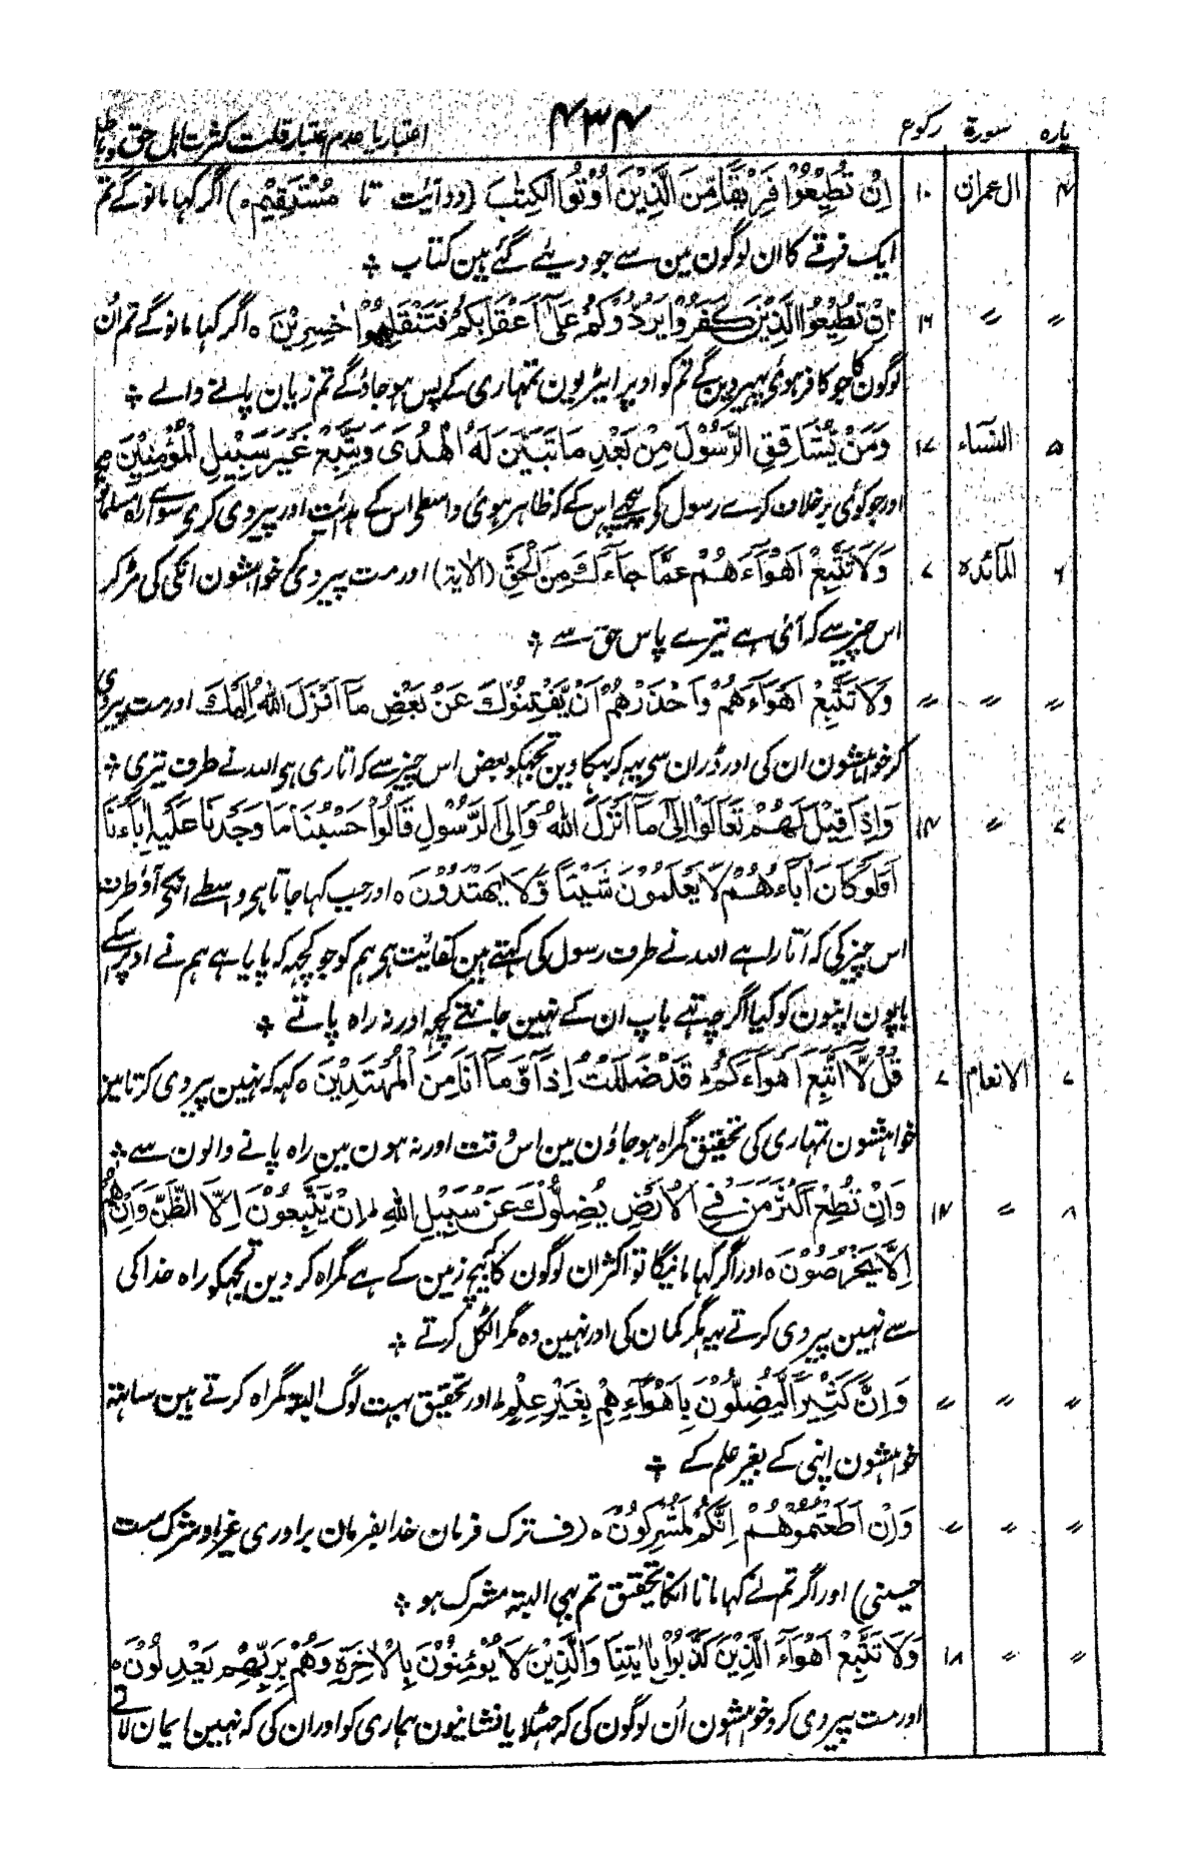 پارہ سورۃ رکوع ۴۳۴ اعتبار یا عدم اعتبار قلت کثرت اہل حق و باطل
۴ ال عمران ۱۰ اِنْ تُطِیْعُوْا فَرِیْقًا مِّنَ الَّذِیْنَ اُوْتُوا الْکِتٰبَ (دو آیت تا مُسْتَقِیْمٍ ہ) اگر کہا مانو گے تم
ایک فرقے کا ان لوگون مین سے جو دیئے گئے ہین کتاب ÷
〃 〃 ۱۶ اِنْ تُطِیْعُوا الَّذِیْنَ کَفَرُوْا یَرُدُّوْکُمْ عَلٰٓی اَعْقَابِکُمْ فَتَنْقَلِبُوْا خٰسِرِیْنَ ہ اگر کہا مانو گے تم اُن
لوگون کا جو کافر ہوئی پہیر دین گے تم کو اوپر ایڑیون تمہاری کے پس ہو جاؤ گے تم زیان پانے والے ÷
۵ النسآء ۱۷ وَمَنْ یُّشَاقِقِ الرَّسُوْلَ مِنْ بَعْدِ مَا تَبَیَّنَ لَہُ الْھُدٰی وَیَتَّبِعْ غَیْرَ سَبِیْلِ الْمُؤْمِنِیْنَ
اور جو کوئی برخلاف کرے رسول کو پیچھے اس کے کہ ظاہر ہوئی واسطی اس کے ہدائت اور پیروی کری سوای راہ
۶ المآئدہ ۷ وَلَا تَتَّبِعْ اَھْوَآءَھُمْ عَمَّا جَآءَکَ مِنَ الْحَقِّ (الاٰیۃ) اور مت پیروی کی خواہشون انکی کی مڑکر
اس چیز سے کہ آئی ہے تیرے پاس حق سے ÷
〃 〃 〃 وَلَا تَتَّبِعْ اَھْوَآءَھُمْ وَاحْذَرْھُمْ اَنْ یَّفْتِنُوْکَ عَنْ بَعْضِ مَآ اَنْزَلَ اللّٰہُ اِلَیْکَ اور مت پیروی
کر خواہشون ان کی اور ڈر ان سی یہہ کہ بہکا دین تجہکو بعض اس چیز سے کہ اتاری ہی اللہ نے طرف تیری ÷
۷ 〃 ۱۴ وَاِذَا قِیْلَ لَھُمْ تَعَالَوْا اِلٰی مَآ اَنْزَلَ اللّٰہُ وَاِلَی الرَّسُوْلِ قَالُوْا حَسْبُنَا مَا وَجَدْنَا عَلَیْہِ اٰبَآءَنَا
اَوَلَوْ کَانَ اٰبَآءُھُمْ لَا یَعْلَمُوْنَ شَیْئًا وَّلَا یَھْتَدُوْنَ ہ اور جب کہا جاتا ہی واسطے انکی آؤ طرف
اس چیز کی کہ اتارا ہے اللہ نے طرف رسول کی کہتے ہین کفائیت ہی ہم کو جو کچہہ کہ پایا ہے ہم نے اوپر اسکے
باپون اپنون کو کیا اگرچہ تہے باپ ان کے نہین جانتے کچہہ اور نہ راہ پاتے ÷
۷ الانعام ۷ قُلْ لَّآ اَتَّبِعُ اَھْوَآءَکُمْ قَدْ ضَلَلْتُ اِذًا وَّمَآ اَنَا مِنَ الْمُھْتَدِیْنَ ہ کہہ کہ نہین پیروی کرتا مین
خواہشون تمہاری کی تحقیق گمراہ ہو جاؤن مین اس وقت اور نہ ہون مین راہ پانے والون سے ÷
۸ 〃 ۱۴ وَاِنْ تُطِعْ اَکْثَرَ مَنْ فِی الْاَرْضِ یُضِلُّوْکَ عَنْ سَبِیْلِ اللّٰہِ ط اِنْ یَّتَّبِعُوْنَ اِلَّا الظَّنَّ وَاِنْ ھُمْ
اِلَّا یَخْرُصُوْنَ ہ اور اگر کہا مانیگا تو اکثر ان لوگون کا بیچ زمین کے ہے گمراہ کر دین تجہکو راہ خدا کی
سے نہین پیروی کرتے یہہ مگر گمان کی اور نہین وہ مگر اٹکل کرتے ÷
〃 〃 〃 وَاِنَّ کَثِیْرًا لَّیُضِلُّوْنَ بِاَھْوَآءِھِمْ بِغَیْرِ عِلْمٍ ط اور تحقیق بہت لوگ البتہ گمراہ کرتے ہین ساتہہ
خواہشون اپنی کے بغیر علم کے ÷
〃 〃 〃 وَاِنْ اَطَعْتُمُوْھُمْ اِنَّکُمْ لَمُشْرِکُوْنَ ہ (ف ترک فرمان خدا بفرمان برداری غیر او شرک ست
حسینی) اور اگر تم نے کہا مانا انکا تحقیق تم بہی البتہ مشرک ہو ÷
〃 〃 ۱۸ وَلَا تَتَّبِعْ اَھْوَآءَ الَّذِیْنَ کَذَّبُوْا بِاٰیٰتِنَا وَالَّذِیْنَ لَا یُؤْمِنُوْنَ بِالْاٰخِرَۃِ وَھُمْ بِرَبِّھِمْ یَعْدِلُوْنَ ہ
اور مت پیروی کر و خواہشون اُن لوگون کی کہ جہٹلایا نشانیون ہماری کو اور ان کی کہ نہین ایمان لاتے